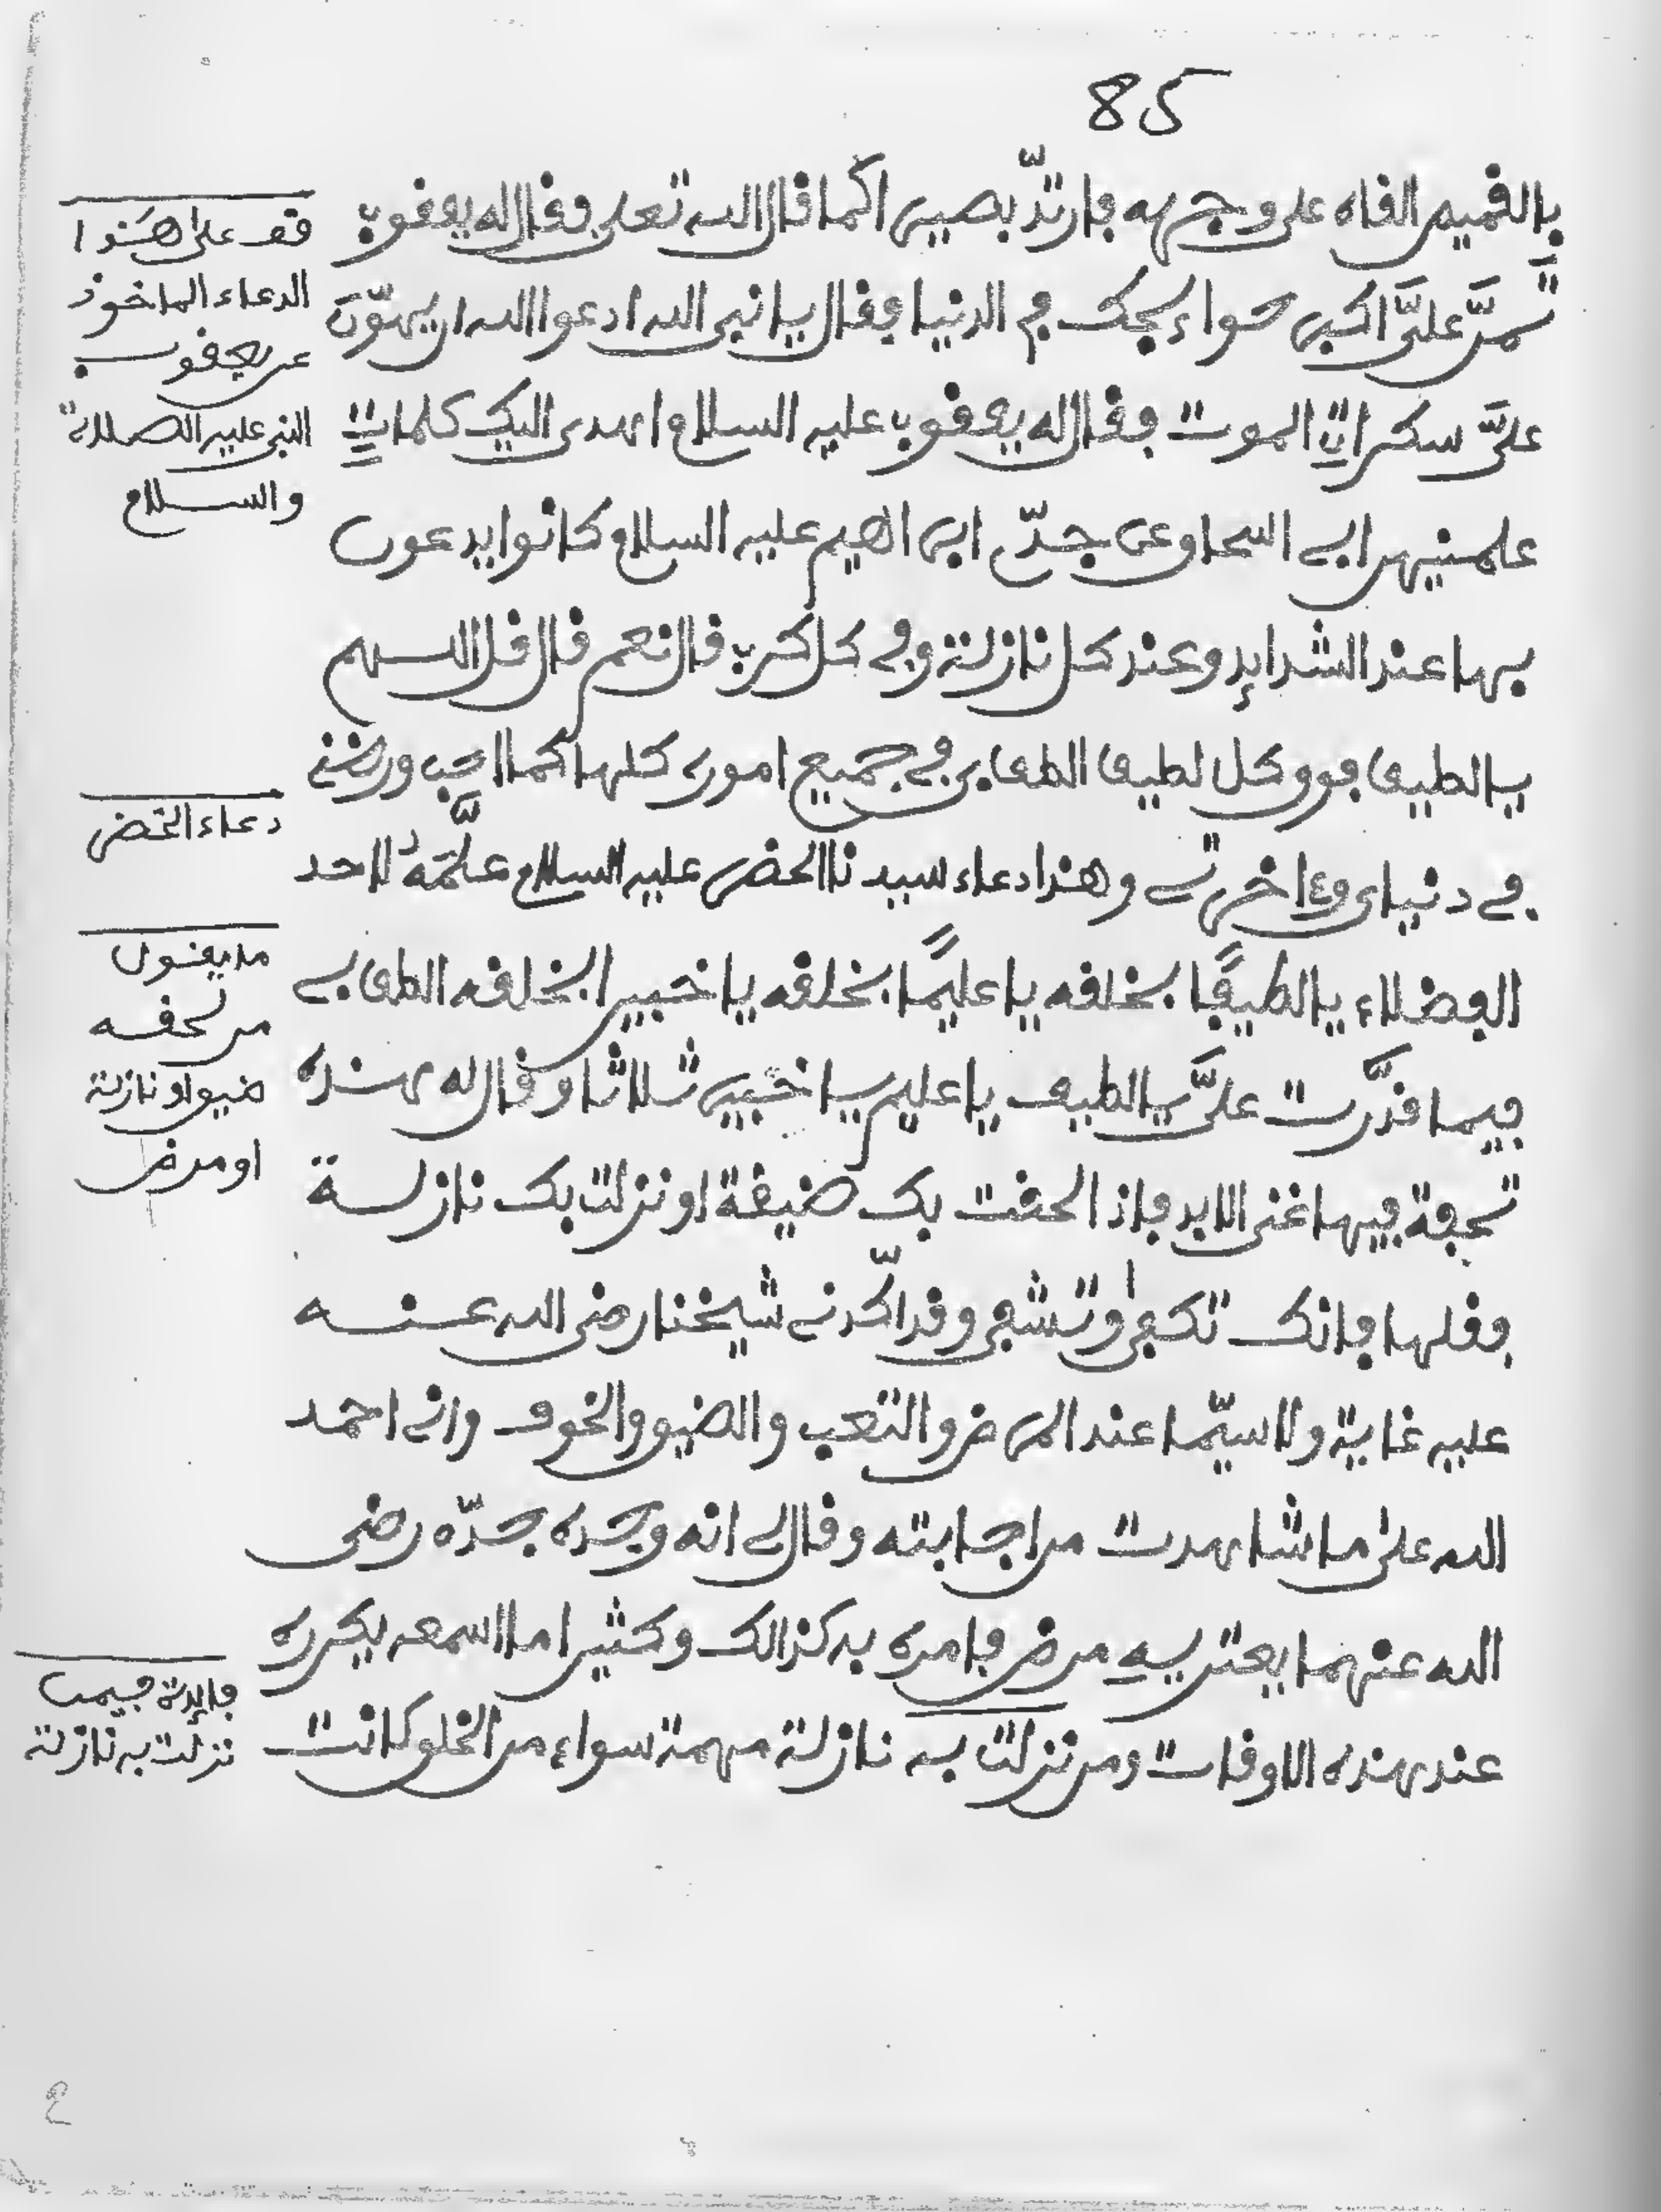 85
بالقميص القاه على وجهه فارتدّ بصيرا كما قال الله تعلى فقال له يعقوب
تمنَّ علىَّ اكبر حوائجك في الدنيا فقال يا نبي الله ادعوا الله ان يهوّن
علىَّ سكرات الموت فقال له يعقوب عليه السلام اهدى اليك كلمات
علمنيهن ابي اسحاق عن جدّي ابراهيم عليه السلام كانوا يدعون
بها عند الشدايد وعند كل نازلة وفي كل كرب قال نعم قال قل اللهم
يا لطيف فوق كل لطيف الطف بي في جميع اموري كلها كما احب ورضني
في دنياى وءاخرتي وهذا دعاء سيدنا الخضر عليه السلام علَّمَهُ لاحد
الفضلاء يا لطيفًا بخلقه يا عليمًا بخلقه يا خبيرا بخلقه الطف بي
فيما قدّرت علىَّ يا لطيف يا عليم يا خبير ثلاثا وقال له هذه
تحفة فيها غنى الابد فاذا لحقت بك ضيقة او نزلت بك نازلة
فقلها فانك تكفى وتشفى وقد اكّدني شيخنا رضى الله عنه
عليه غاية ولاسيّما عند المرض والتعب والضيق والخوف واني احمد
الله على ما شاهدت من اجابته وقال لي انه وجده جدّه رضى
الله عنهما يعتريه مرض فامره به كذالك وكثيرا ما اسمعه يكرره
عند هذه الاوقات ومن نزلت به نازلة مهمة سواء من الخلق كانت
قف على هَذا
الدعاء الماخوذ
عن يعقوب
النبي عليه الصلاة
والسلام
دعاء الخضر
ما يقول
من لحقه
ضيق او نازلة
او مرض
فايدة فيمن
نزلت به نازلة